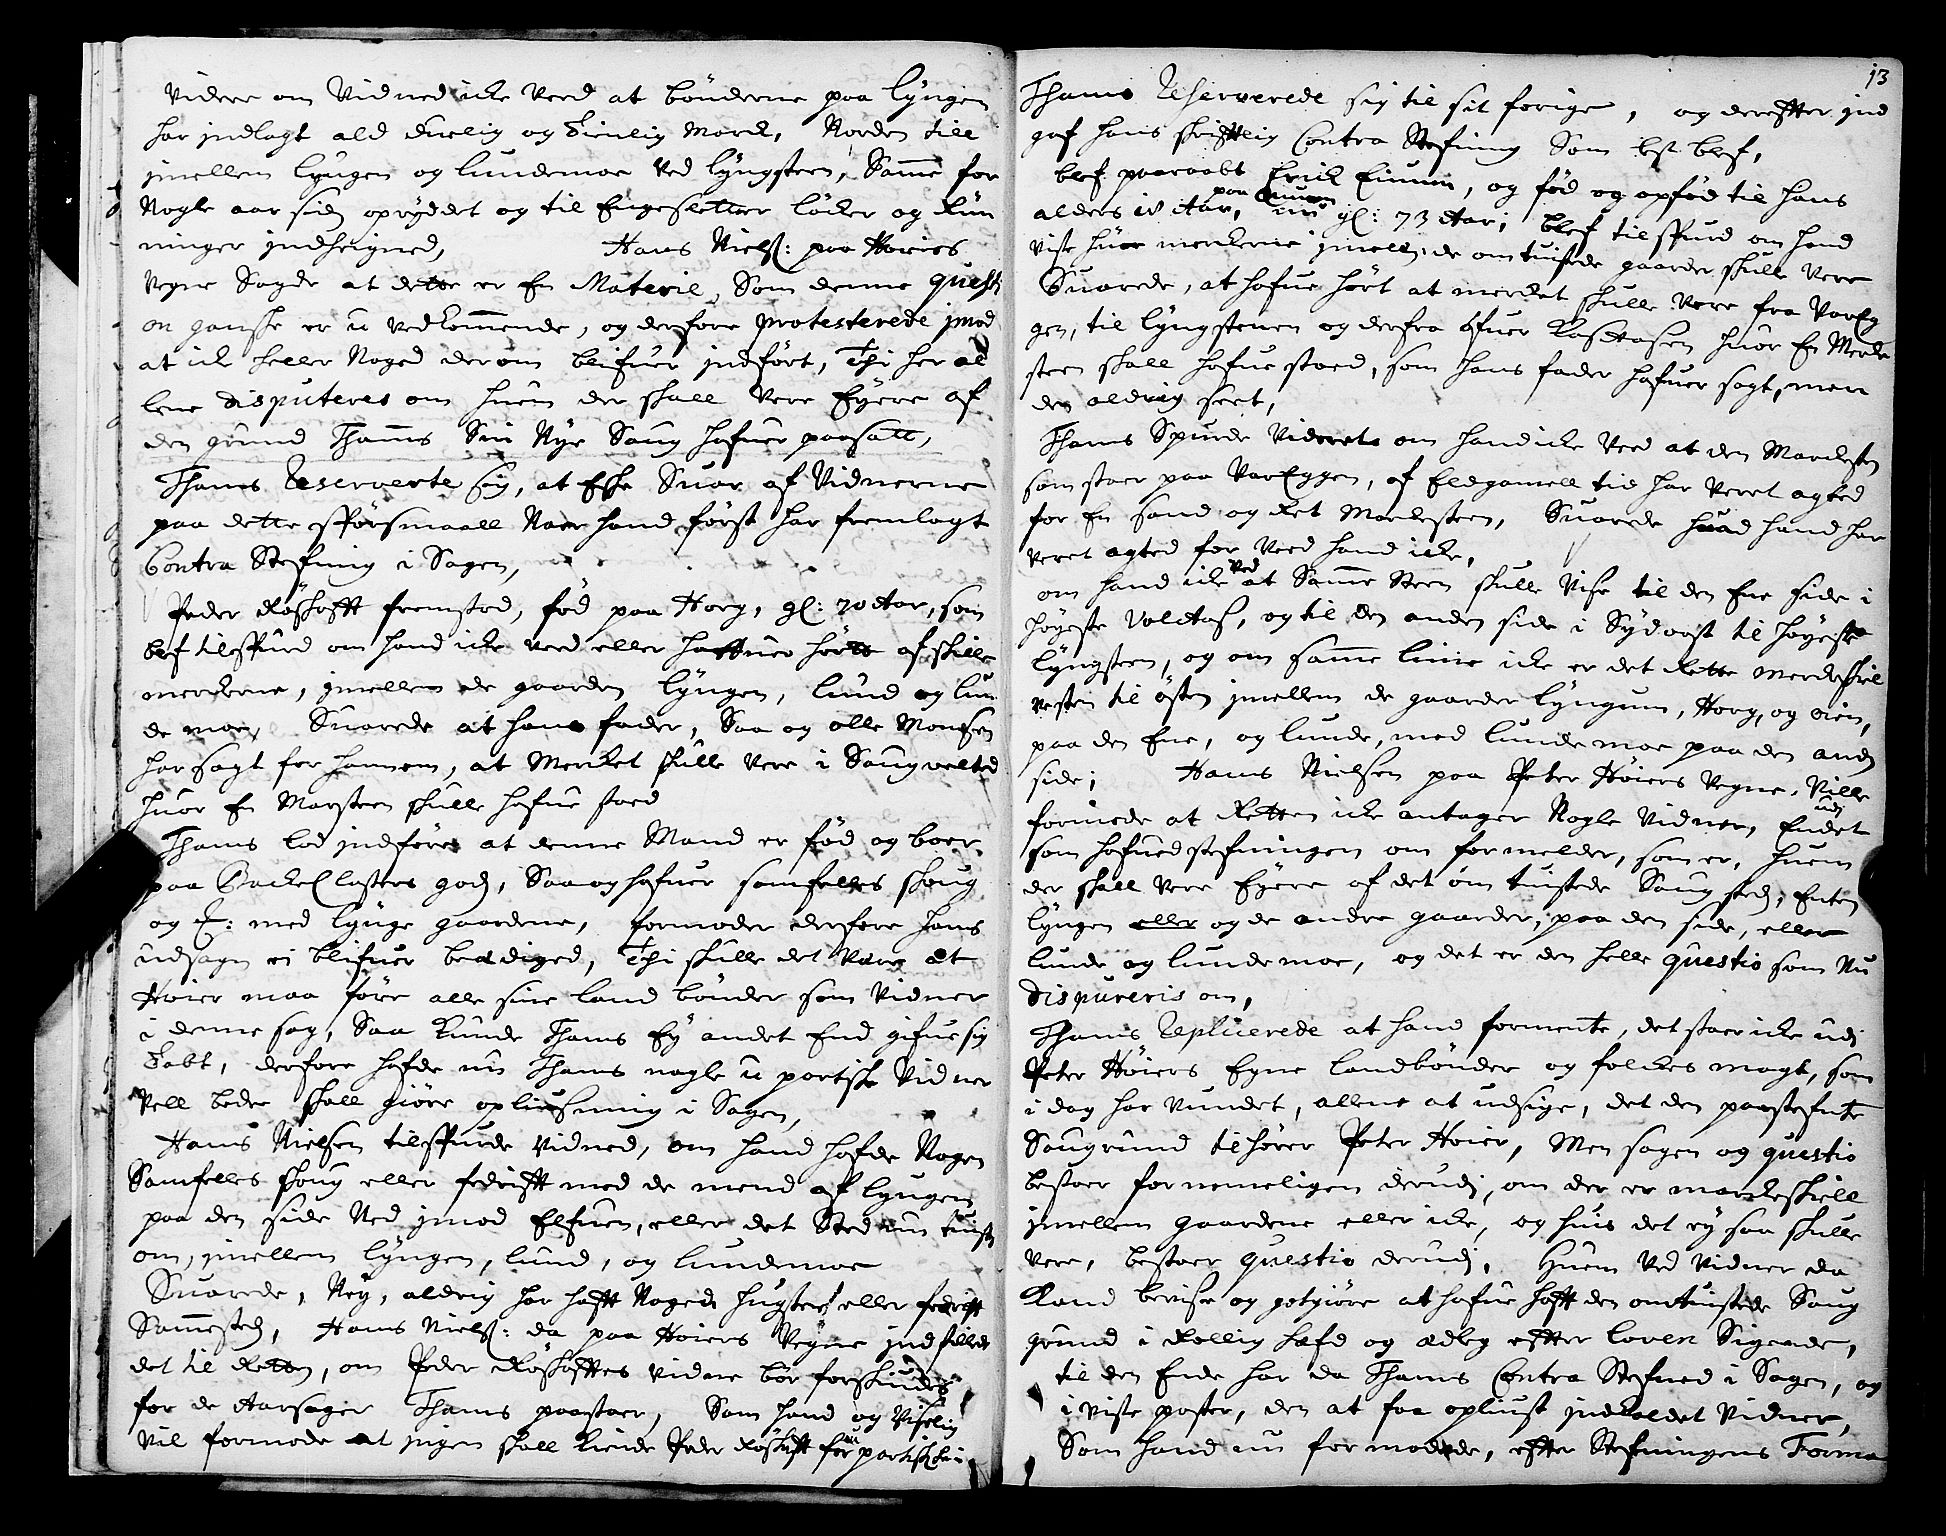 Videre om Vidned icke Veed at bønderne paa Lyngen
har jndlagt ald duelig og tienlig Marck, Norden till
jmellem Lyngen og Lundemoe Ved Lyngsteen, Samme for
Nogle aar siden oprÿddet og til Engesletter løcker og Rün
ninger jndheigned, Hans Nielß: paa Høiers
Vegne Sagde at dette er En Materie, Som denne questi
on gansche er u Vedkommende, og derfore protesterede jmod
at icke heller Noged derom blifuer jndført, Thi her al
lene disputeres om huem der skall Vere Eÿere af
den grund Thams Sin Nÿe Saug hafuer paasatt,
Thams Reserverte sig, at Eske Suar af Vidnerne
paa dette spørsmaall Naar hand først har fremlagt
Contra Stefning i Sagen,
Peder Røskafft fremstod, fød paa Horg, gl: 70 Aar, som
blef tilspurd om hand icke veed eller haffuer hørtt af skille
merckerne, jmellem de gaarden Lyngen, Lund og Lun
de moe, Suarede at hans fader, Saa og olle Monsen
har sagt for hannem, at Mercket skulle vere i Saugvelted
huor En Marsteen skulle hafue staaed
Thams lod jndføre at denne Mand er fød og boer
paa Backe Closters godz, Saa og hafuer samfelles skoug
og F: med Lÿnge gaardene, formoder derfore hans
udsagn ei blifuer beædiged, Thi skulle det Være at
Høier maa føre alle sine land bønder som Vidner
i denne sag, Saa kunde Thams Eÿ andet End gifue sig
Tabt, derfore hafde nu Thams nogle u partiske Vidner
Vell beder skall giøre opliusning i Sagen,
Hans Nielsen tilspurde Vidned, om hand hafde Nogen
Samfelles skoug eller fedrifft med de mend af Lyngen
paa den side Ned jmod Elfuen, eller det Sted nu tuistes
om, jmellem Lÿngen, Lund, og Lundemoe
Suarede, Neÿ, aldrig har hafft Noged hugster eller fedrifft
Sammesteds, Hans Nielß: da paa Høiers Vegne jndstillede
det til Retten, om Peder Røskafftes Vidne bør forskiudes
for de Aarsager Thams paastaar, Som hand og Viselig
Vil formode at jngen skall kiende Peder Røskafft for partisk
13
Thams Reserverede sig til sit forige, og dereffter jnd
gaf hans skrifftlig Contra Stefning Som est blef,
blef paaraabt Erick Einum, og fød og opfød til hans
alders 18 Aar, paa Einum nu gl: 73 Aar; blef tilspurd om hand
Viste huor merckerne jmellem de omtuistede gaarder skulle Vere
Suarede, at hafue hørt at mercket skulle Vere fra Vareg
gen, til Lÿngstenen og derfra ofuer Kastaasen huor En Merke
steen skall hafue staaed, som hans fader hafuer sagt, men
den aldrig seet,
Thams Spurde Viderets om hand icke Ved at den Marcksten
som staar paa Vareggen, af Eldgamell tid har Veret agted
for En sand og Ret Marckesteen, Suarede huad hand har
veret agted for Veed hand icke,
om hand icke Ved at Samme Steen skulle Vise til den Ene side i
høyeste Voldtaß, og til den anden side i Sÿdost til høyeste
Lyngsteen, og om samme linie icke er det Rette Merckeskiel
vesten til østen jmellem de gaarder Lÿngum, Horg, og oien,
paa den Ene, og Lunde, med Lundemoe paa den anden
side; Hans Nielsen paa Peter Høiers Vegne, Ville
formode at Retten icke antager Nogle Vidner, Endet udj
som hofuedstefningen om formelder, som er, huem
der skall Vere Eÿere af det omtuistede Saug sted; Enten
Lÿngen eller og de andre gaarder, paa den side, eller
Lunde og Lundemoe, og det er den helle questio som Nu
dispureris om,
Thams Replicerede at hand formeente, det staar icke udj
Peter Høiers Egne landbønder og folckes magt, som
i dag har Vundet, allene at udsige, det den paastefnte
Saugrund tilhører Peter Høier, Men sagen og questio
bestaar fornemeligen derudj, om der er marckeskiell
jmellem gaardene eller icke, og huis det eÿ saa skulle
vere, bestaar questio derudj, Huem Ved Vidner da
Kand bevise og gotgiøre at hafue hafft den omtuistede Saug
grund i Rollig hefd og ælleg effter loven Sigende,
til den Ende har da Thams Contra Stefned i Sagen, og
i viste poster, den at faa opliust jndkaldet Vidner,
Som hand nu formodede, effter Stefningens Forma